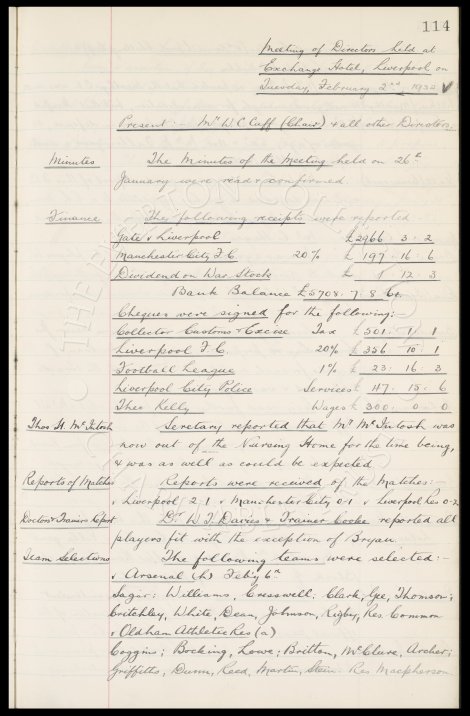 114
Meeting of Directors held at
Exchange Hotel, Liverpool on
Tuesday, February 2nd 1932
Present :- Mr W.C. Cuff (Chair) & all other Directors.
Minutes The Minutes of the Meeting held on 26th
January were read & confirmed.
Finance The following receipts were reported
Gate v Liverpool £2966 . 3 . 2
Manchester City F.C. 20% £ 197 . 16 . 6
Dividend on War Stock £ 1 . 12 . 3
Bank Balance £5708 . 7 . 8 Cr.
Cheques were signed for the following:
Collector Customs & Excise Tax £ 501 . 1 . 1
Liverpool F.C. 20% £ 356 . 10 . 1
Football League 1% £ 23 . 16 . 3
Liverpool City Police Services £ 117 . 15 . 6
Theo Kelly Wages £ 300 . 0 . 0
Thos H. McIntosh Secretary reported that Mr McIntosh was
now out of the Nursing Home for the time being,
& was as well as could be expected.
Reports of Matches Reports were received of the Matches:-
v Liverpool 2-1 v Manchester City 0-1 v Liverpool Res 0-2
Doctor & Trainers Report Dr W.J. Davies & Trainer Cooke reported all
players fit with the exception of Bryan.
Team Selections The following teams were selected :-
v Arsenal (h) Feb'y 6th
Sagar; Williams, Cresswell; Clark, Gee, Thomson;
Critchley, White, Dean, Johnson, Rigby, Res. Common
v Oldham Athletic Res (a)
Coggins; Bocking, Lowe; Britton, McClure, Archer;
Griffiths, Dunn, Reed, Martin, Stein. Res. Macpherson